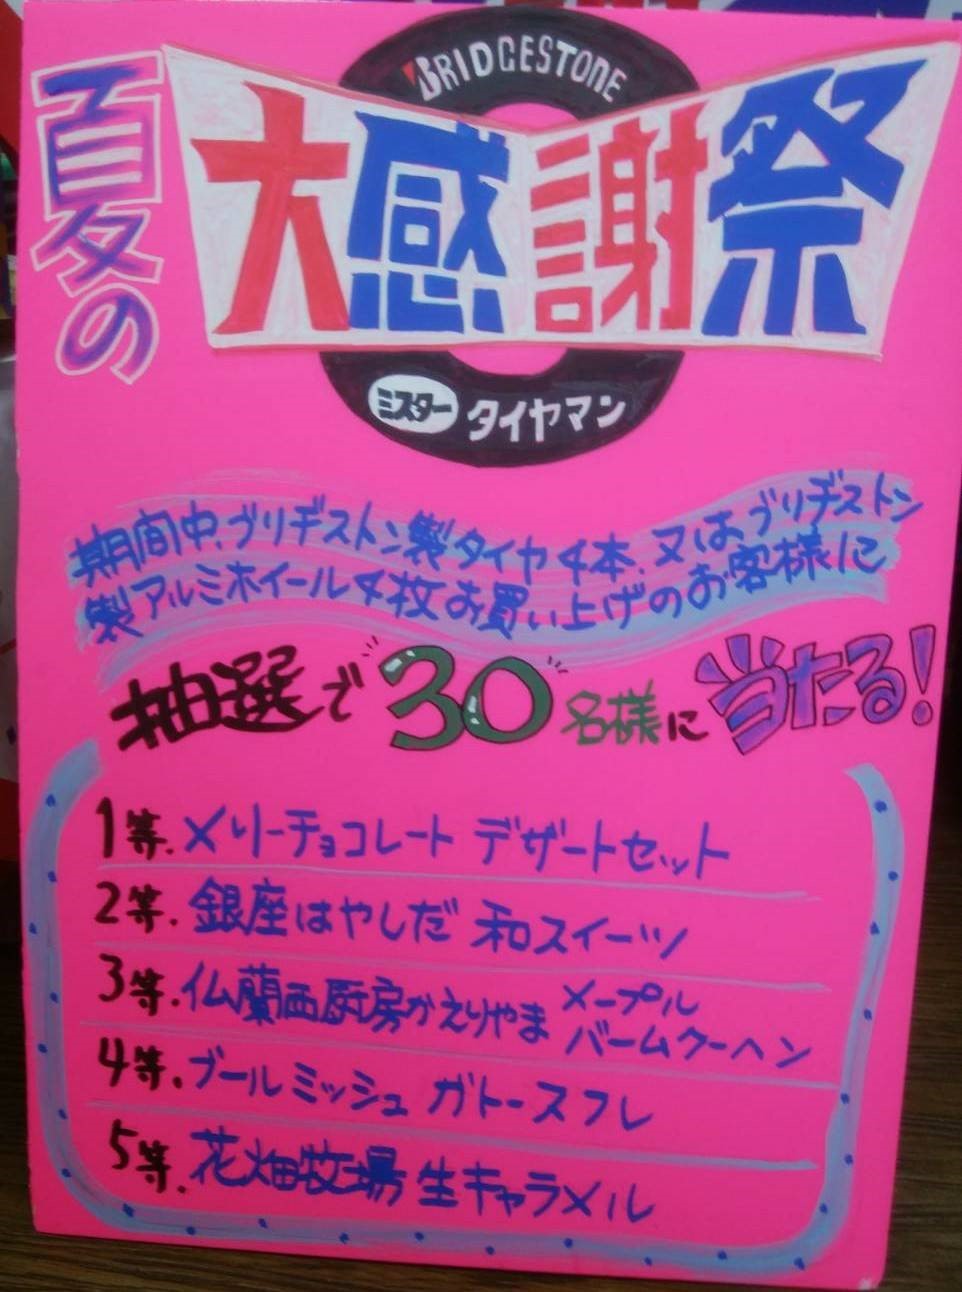 BRIDGESTONE
夏の
大感謝祭
ミスター タイヤマン
期間中、ブリヂストン製タイヤ4本、又はブリヂストン
製アルミホイール4枚お買い上げのお客様に
抽選で30名様に当たる!
1等.メリーチョコレート デザートセット
2等.銀座はやしだ 和スイーツ
3等.仏蘭西厨房かえりやま メープル
バームクーヘン
4等.ブールミッシュ ガトースフレ
5等.花畑牧場 生キャラメル